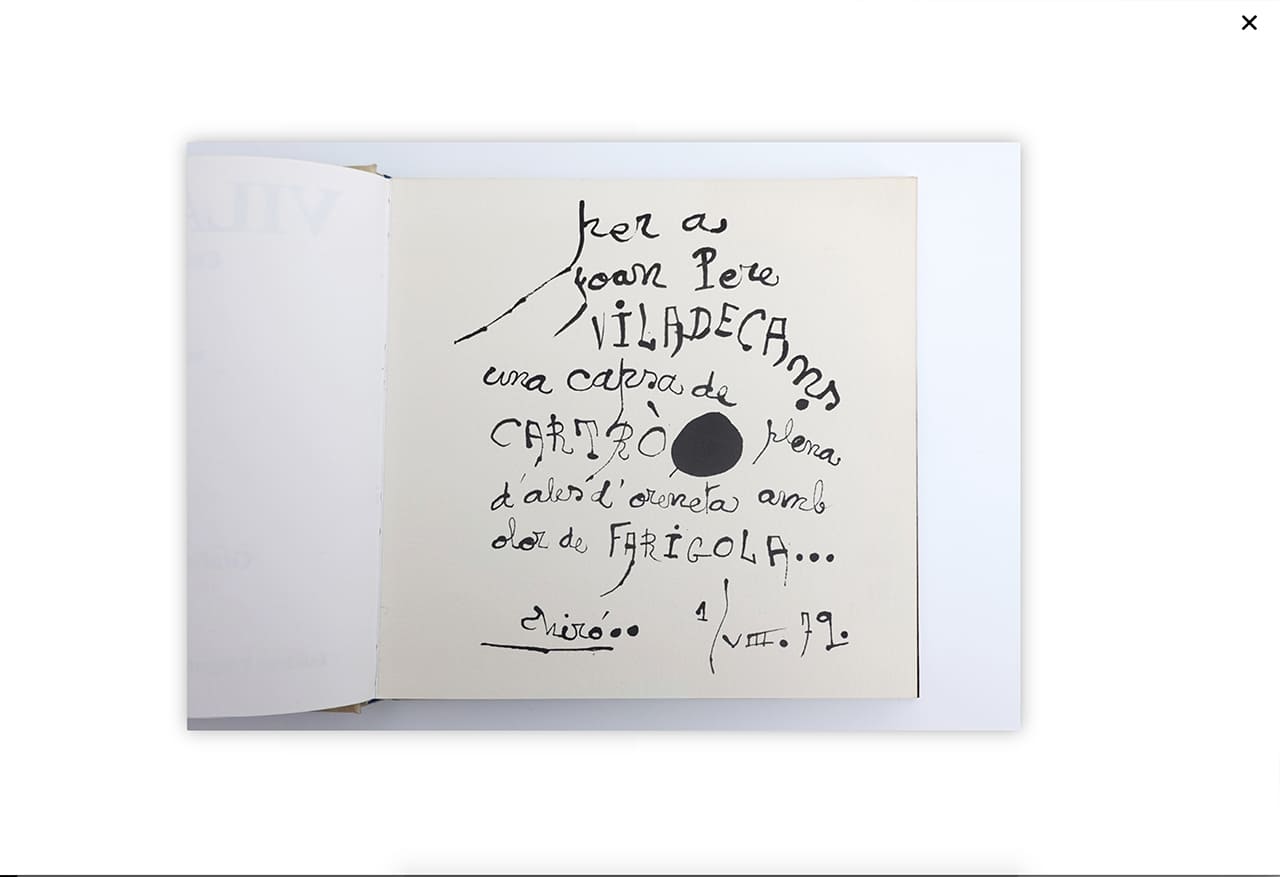 per a
Joan Pere
VILADECANS
una capsa de
CARTRÒ plena
d'ales d'oreneta amb
olor de FARIGOLA...
Miró..
1/VIII.79.
VILA